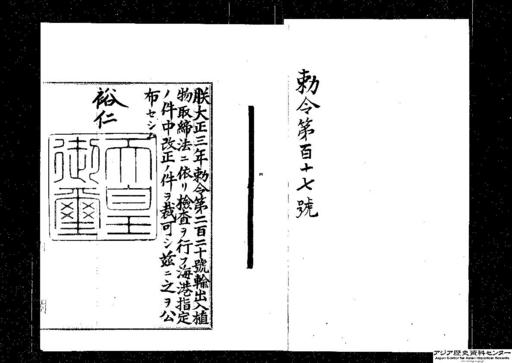 勅令第百十七號
朕大正三年勅令第二百二十號輸出入植
物取締法ニ依リ檢査ヲ行フ海港指定
ノ件中改正ノ件ヲ裁可シ茲ニ之ヲ公
布セシム
裕仁
天皇
御璽
アジア歴史資料センター
Japan Center for Asian Historical Records